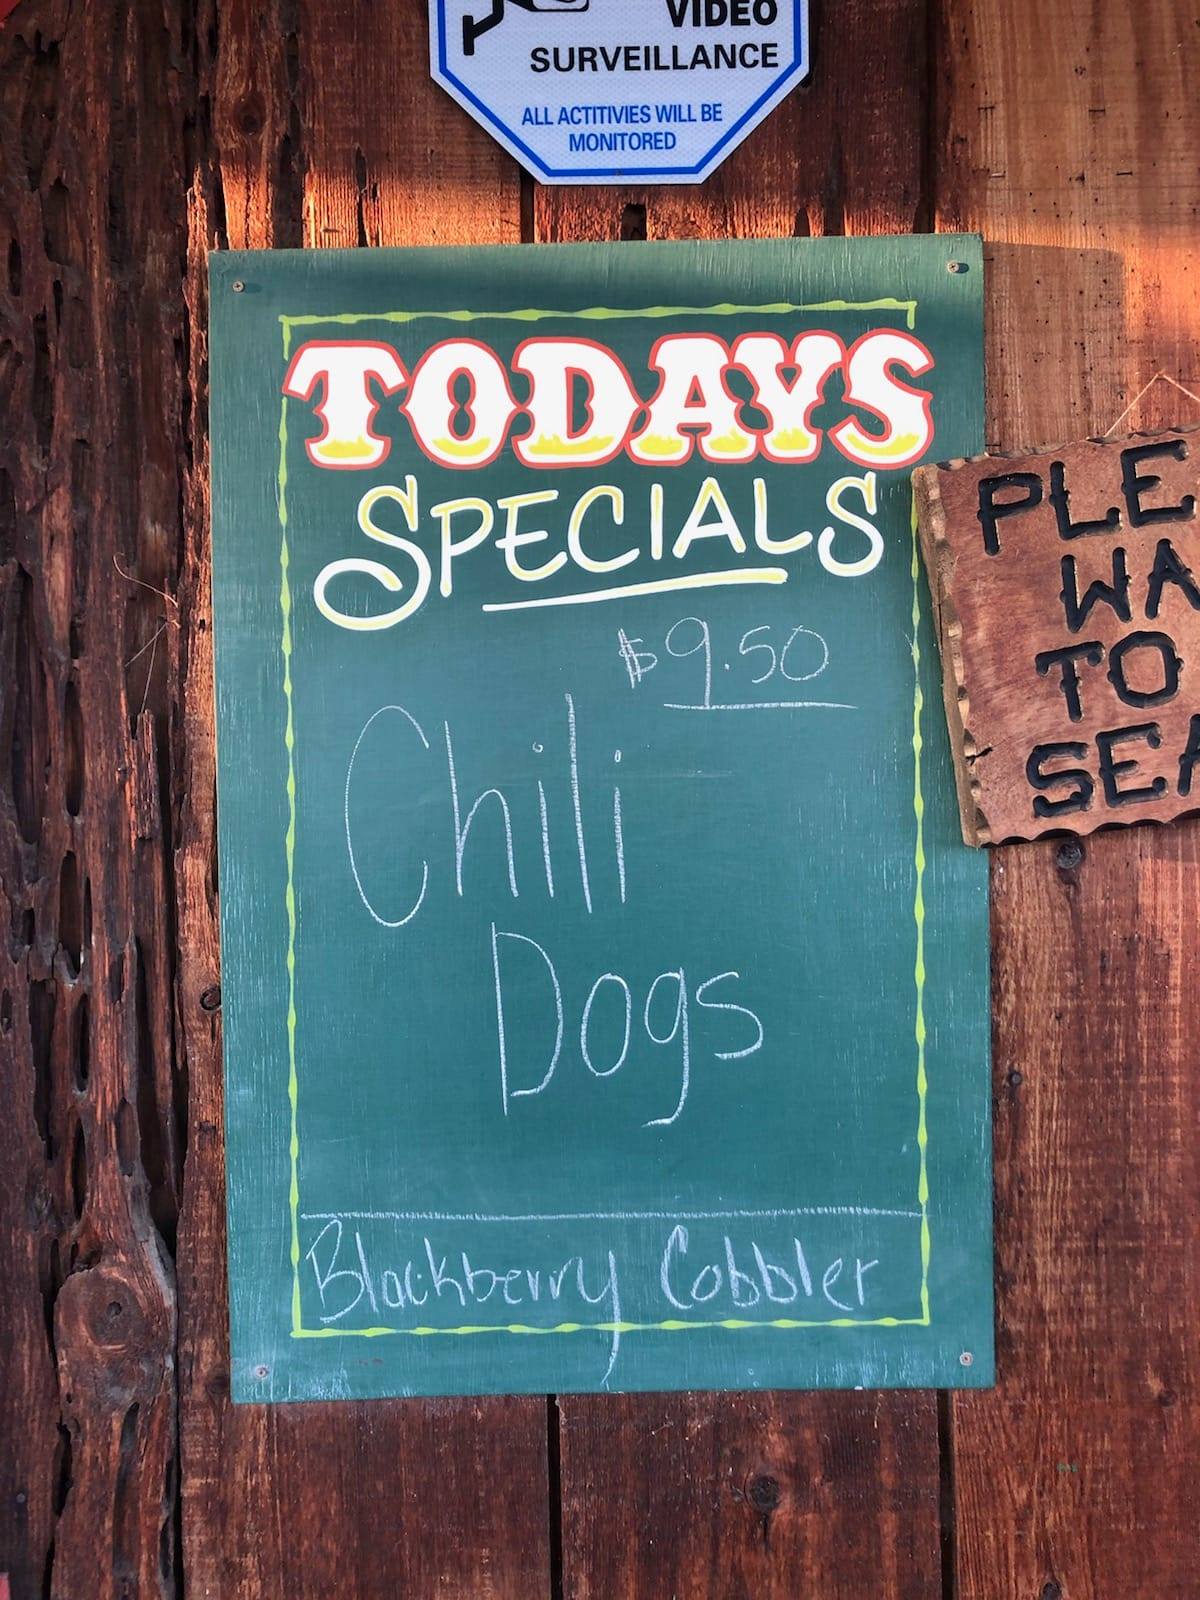 VIDEO
SURVEILLANCE
ALL ACTITIVIES WILL BE
MONITORED
TODAYS
SPECIALS
$9.50
Chili
Dogs
Blackberry Cobbler
PLE
WA
TO
SEA